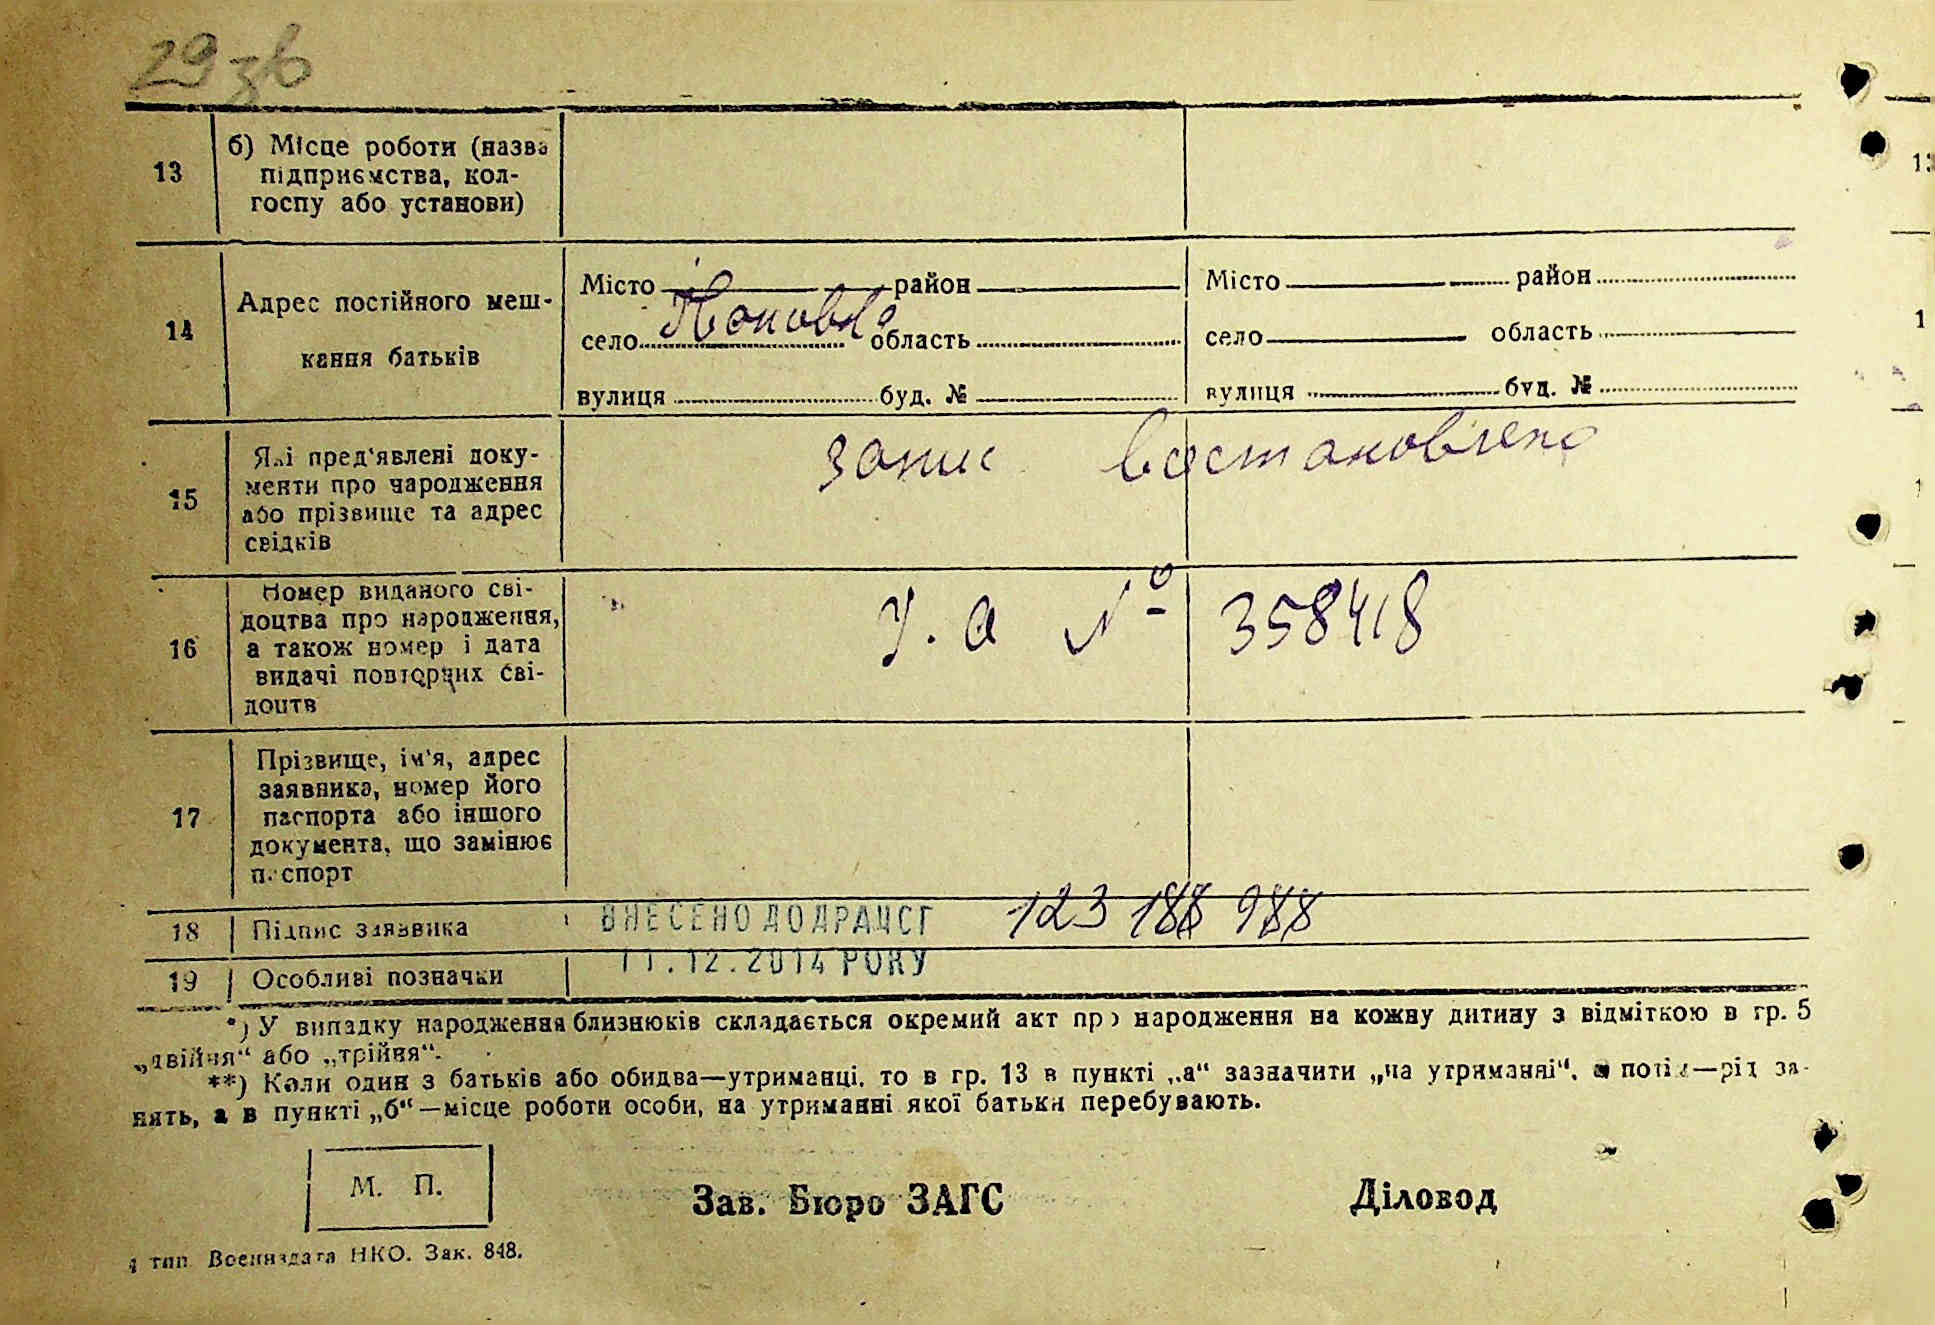 29 зв
13
б) Місце роботи (назва
підприємства, кол-
госпу або установи)
14
Адрес постійного меш-
кання батьків
Місто район
село область
вулиця буд. №
Місто район
село область
вулиця буд. №
15
Які пред'явлені доку-
менти про народження
або прізвище та адрес
свідків
запис востановлено
16
Номер виданого сві-
доцтва про народження,
а також номер і дата
видачі повторних сві-
доцтв
У. а № 358418
17
Прізвище, ім'я, адрес
заявника, номер його
паспорта або іншого
документа, що замінює
паспорт
18
Підпис заявника
ВНЕСЕНО ДО ДРАЦСГ 123 188 988
19
Особливі позначки
11.12.2014 РОКУ
*) У випадку народження близнюків складається окремий акт про народження на кожну дитину з відміткою в гр. 5
„двійня“ або „трійня“.
**) Коли один з батьків або обидва—утриманці, то в гр. 13 в пункті „а“ зазначити „на утриманні“, а потім—рід за-
нять, а в пункті „б“—місце роботи особи, на утриманні якої батьки перебувають.
М. П.
Зав. Бюро ЗАГС
Діловод
тип. Воениздата НКО. Зак. 848.